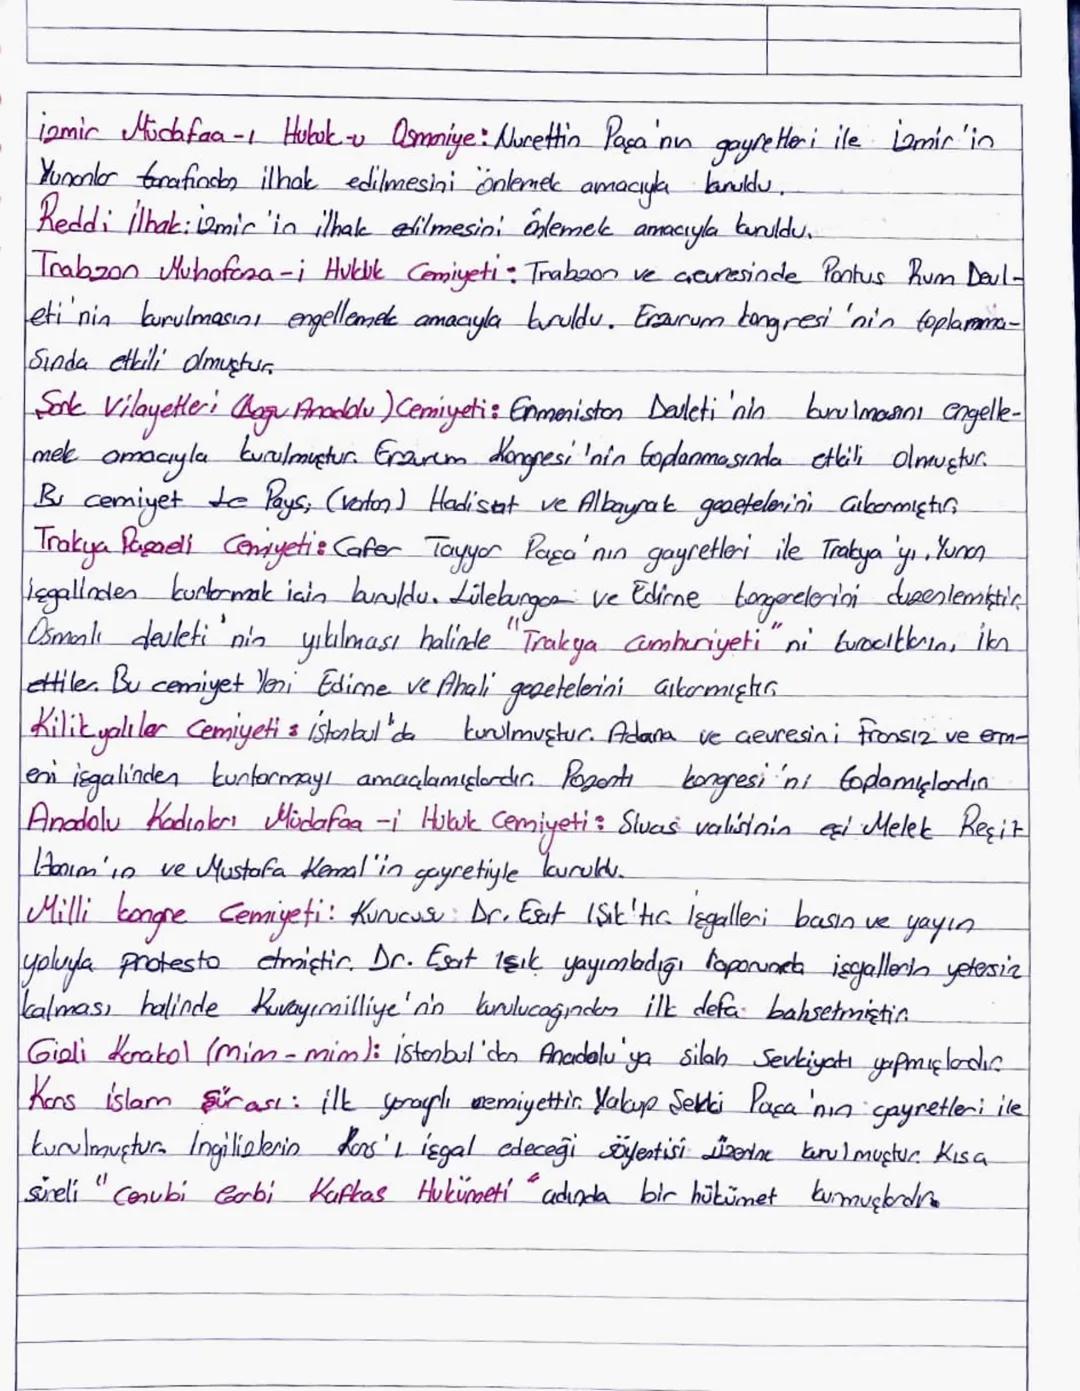 izmir Müdafaa-ı Hukuk-u Osmaniye: Nurettin Paşa'nın gayretleri ile İzmir'in
Yunanlar tarafından ilhak edilmesini önlemek amacıyla kuruldu.
Reddi İlhak: izmir'in ilhak edilmesini önlemek amacıyla kuruldu.
Trabzon Muhafaza-i Hukuk Cemiyeti: Trabzon ve çevresinde Pontus Rum Devl-
eti'nin kurulmasını engellemek amacıyla kuruldu. Erzurum kongresi'nin toplanma-
sında etkili olmuştur.
Şark Vilayetleri (Doğu Anadolu) Cemiyeti: Ermenistan Devleti'nin kurulmasını engelle-
mek amacıyla kurulmuştur. Erzurum Kongresi'nin toplanmasında etkili olmuştur.
Bu cemiyet Le Pays, (vatan) Hadisat ve Albayrak gazetelerini çıkarmıştır.
Trakya Paşaeli Cemiyeti: Cafer Tayyar Paşa'nın gayretleri ile Trakya'yı, Yunan
işgalinden kurtarmak için kuruldu. Lüleburgaz ve Edirne kongrelerini düzenlemiştir.
Osmanlı devleti'nin yıkılması halinde "Trakya Cumhuriyeti"ni kuracıkların, ilan
ettiler. Bu cemiyet Yeni Edirne ve Ahali gazetelerini çıkarmıştır.
Kilikyalılar Cemiyeti: istanbul'da kurulmuştur. Adana ve çevresini Fransız ve erm-
eni işgalinden kurtarmayı amaçlamışlardır. Pozantı kongresi'ni toplamışlardır.
Anadolu Kadınları Müdafaa-i Hukuk Cemiyeti: Sivas valisinin eşi Melek Reşit
Hanım'ın ve Mustafa Kemal'in gayretiyle kuruldu.
Milli kongre Cemiyeti: Kurucusu: Dr. Esat Işık'tır. işgalleri basın ve yayın
yoluyla protesto etmiştir. Dr. Esat Işık yayımladığı raporunda işgallerin yetersiz
kalması halinde Kuvayımilliye'nin kurulucağından ilk defa bahsetmiştir.
Gizli Karakol (mim-mim): istanbul'dan Anadolu'ya silah sevkiyatı yapmışlardır.
Kars islam şûrası: ilk yararlı cemiyettir. Yakup Şevki Paşa'nın gayretleri ile
kurulmuştur. İngilizlerin Kars'ı işgal edeceği söylentisi üzerine kurulmuştur. Kısa
süreli "Cenubi Garbi Kafkas Hukümeti" adında bir hükümet kurmuşlardır.